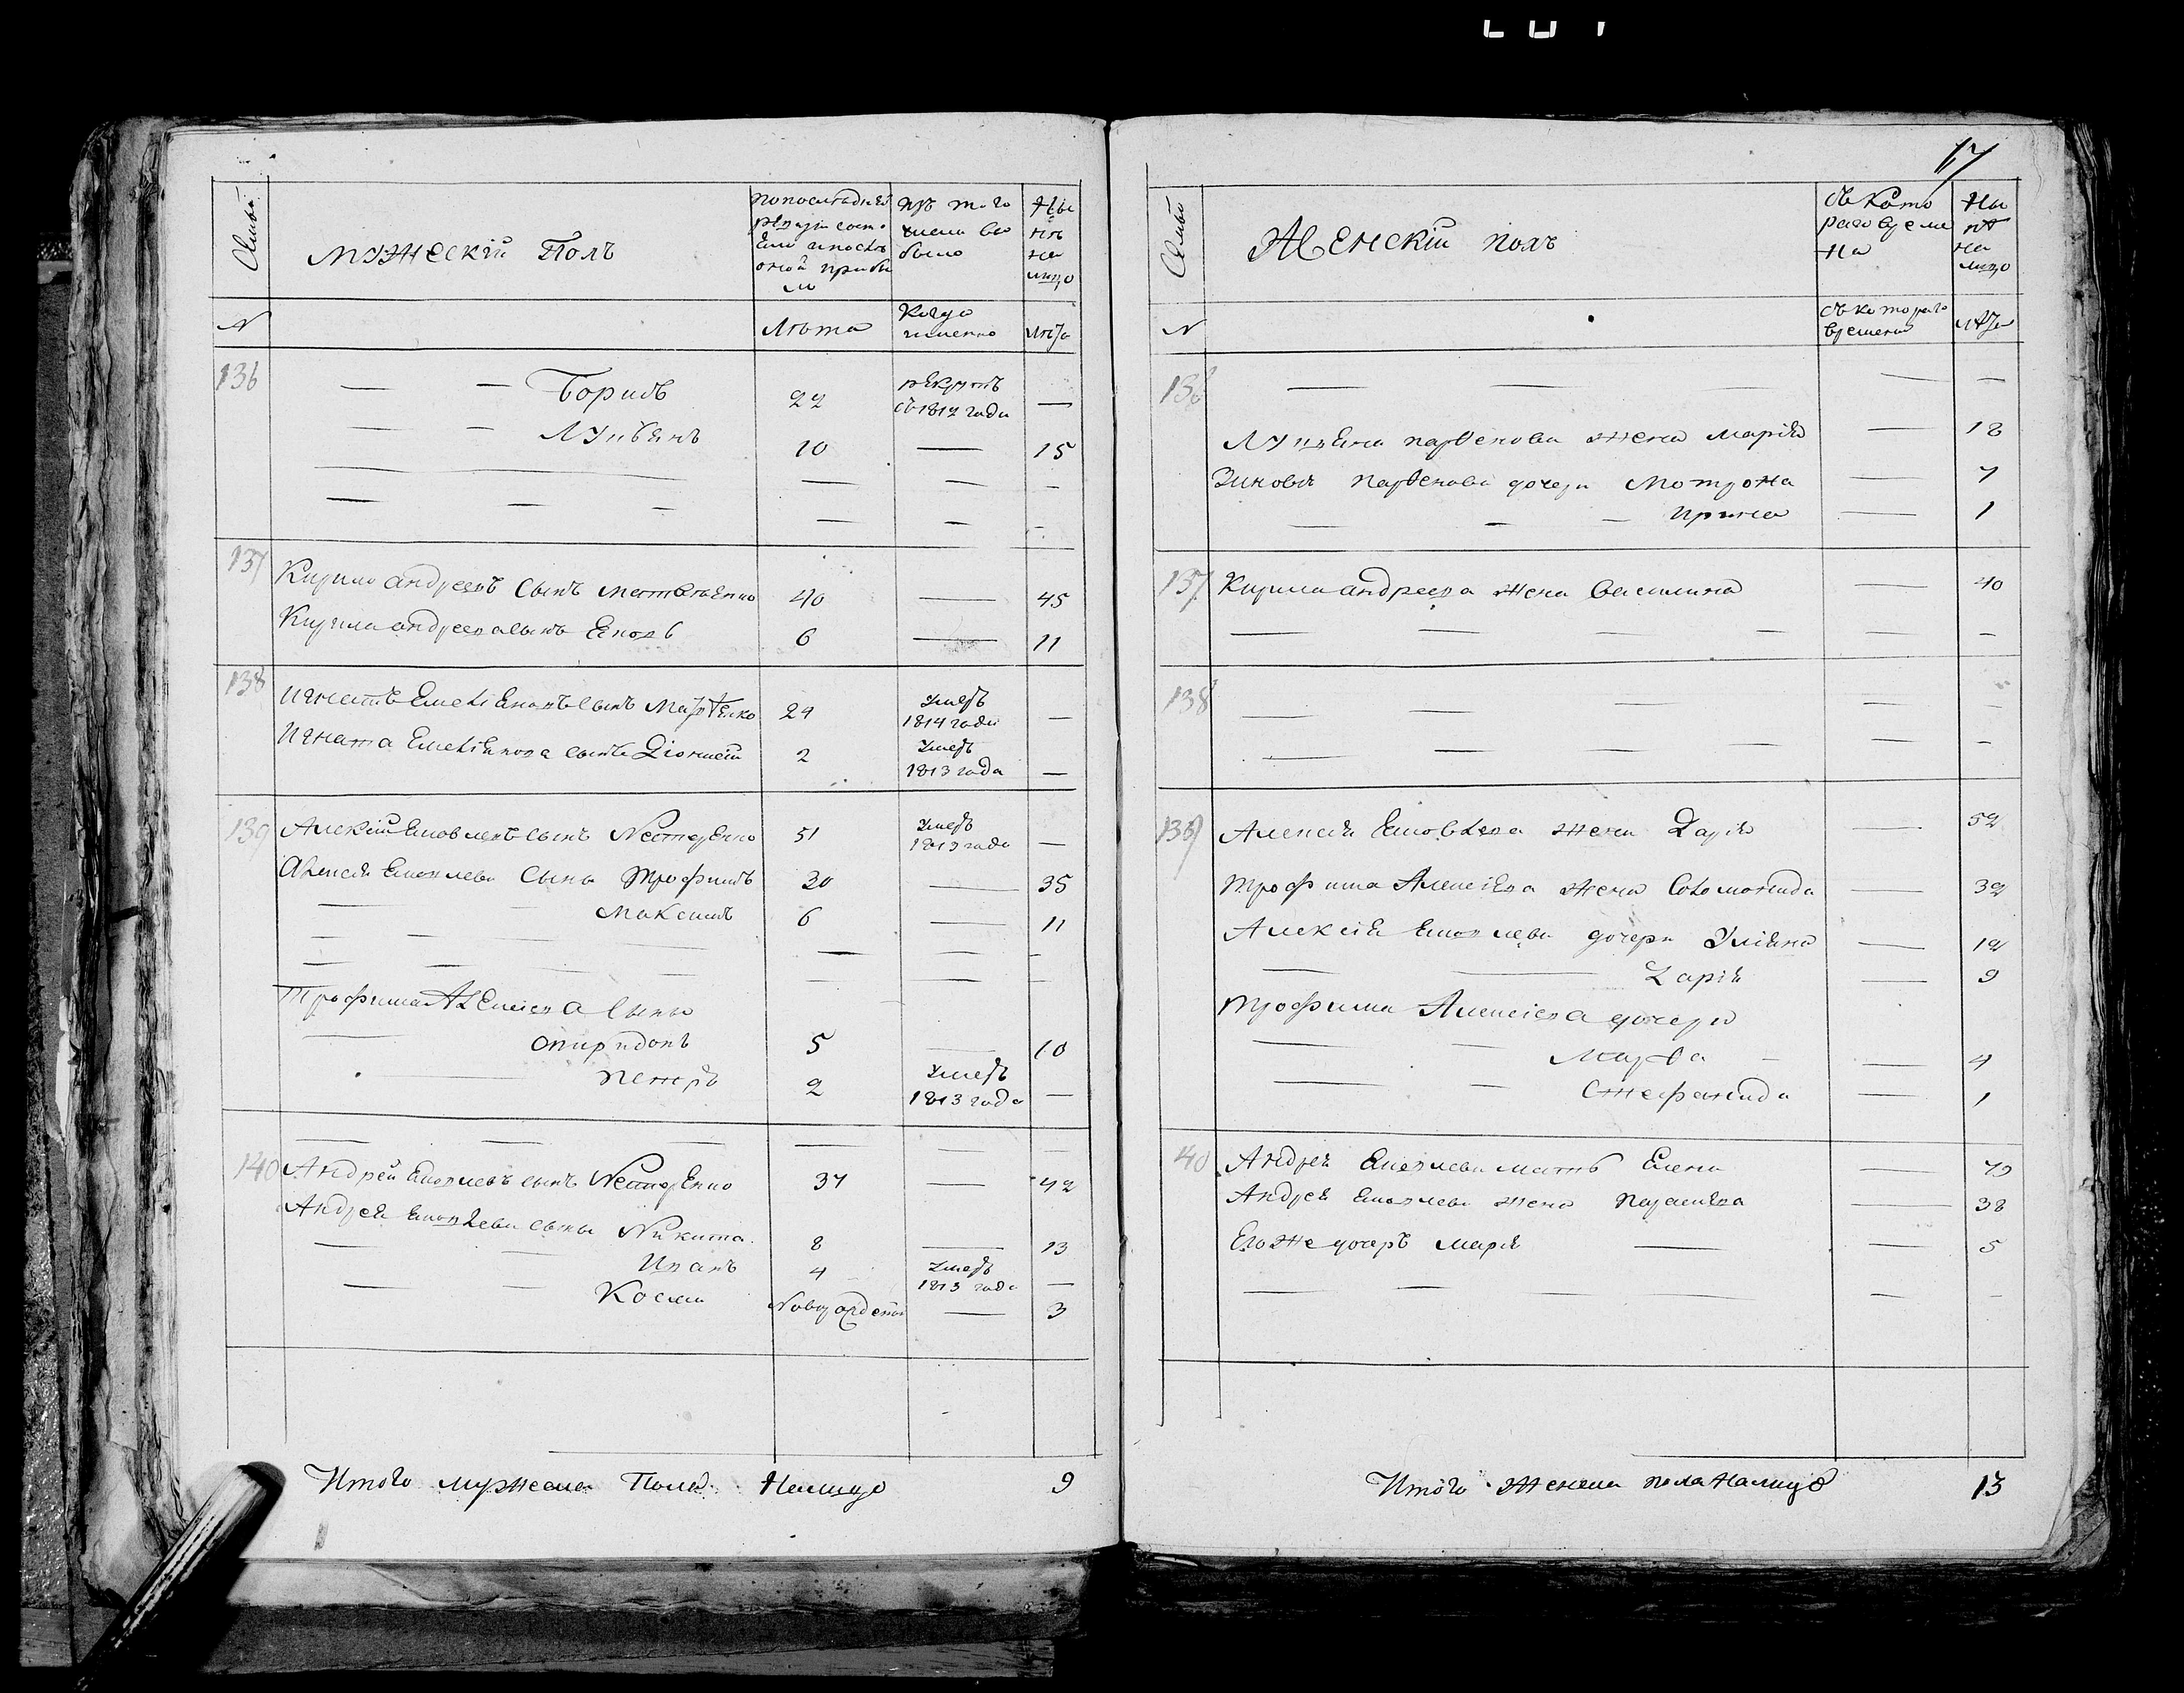 17
Семьи
МУЖЕСКІЙ Полъ
По последней
ревизіи состо
яло и после
оной прибы
ло
изъ того
числа вы
было
Ны
нѣ
на
лицо
N
Лѣта
Когда
именно
лѣта
136
Борисъ 22 рекрутъ съ 1812 года —
Лукьянъ 10 — 15
137 Кирило андреевъ сынъ
40 — 45
Кирила андреева сынъ Яковъ 6 — 11
138 Игнатъ Емельяновъ сынъ 24 умеръ 1814 года —
Игната Емельянова сынъ Діонисій 2 умеръ 1813 года —
139 Алексій Яковлевъ сынъ Нестеренко 51 умеръ 1813 года —
Алексѣя Яковлева сыны Трофимъ 30 — 35
Максимъ 6 — 11
Трофима Алексіева сыны
Спиридонъ 5 — 10
Петръ 2 умеръ 1813 года —
140 Андрей Яковлевъ сынъ Нестеренко 37 — 42
Андрея Яковлева сыны Никита 8 — 13
Иванъ 4 умеръ 1813 года —
Косма Новорожденой — 3
Итого мужеска Пола Налицо 9
Семьи
ЖЕНСКІЙ полъ
съ Кото
раго време
на
Ны
нѣ
на
лицо
N
съ котораго
времени
лѣта
136
Лукьяна парѳенова жена Марія — 18
Зиновія парѳенова дочери Мотрона — 7
Ирина — 1
137 Кирила андреева жена Василина — 40
138
139 Алексѣя Яковлева жена Дарія — 52
Трофима Алексіева жена Соломонида — 32
Алексія Яковлева дочери Уліяна — 12
Дарія — 9
Трофима Алексіева дочери
Марѳа — 4
Стефанида — 1
40 Андрея Яковлева мать Елена — 70
Андрея Яковлева жена Параскева — 38
Его же дочеръ Марія — 5
Итого Женска пола Налицо 13